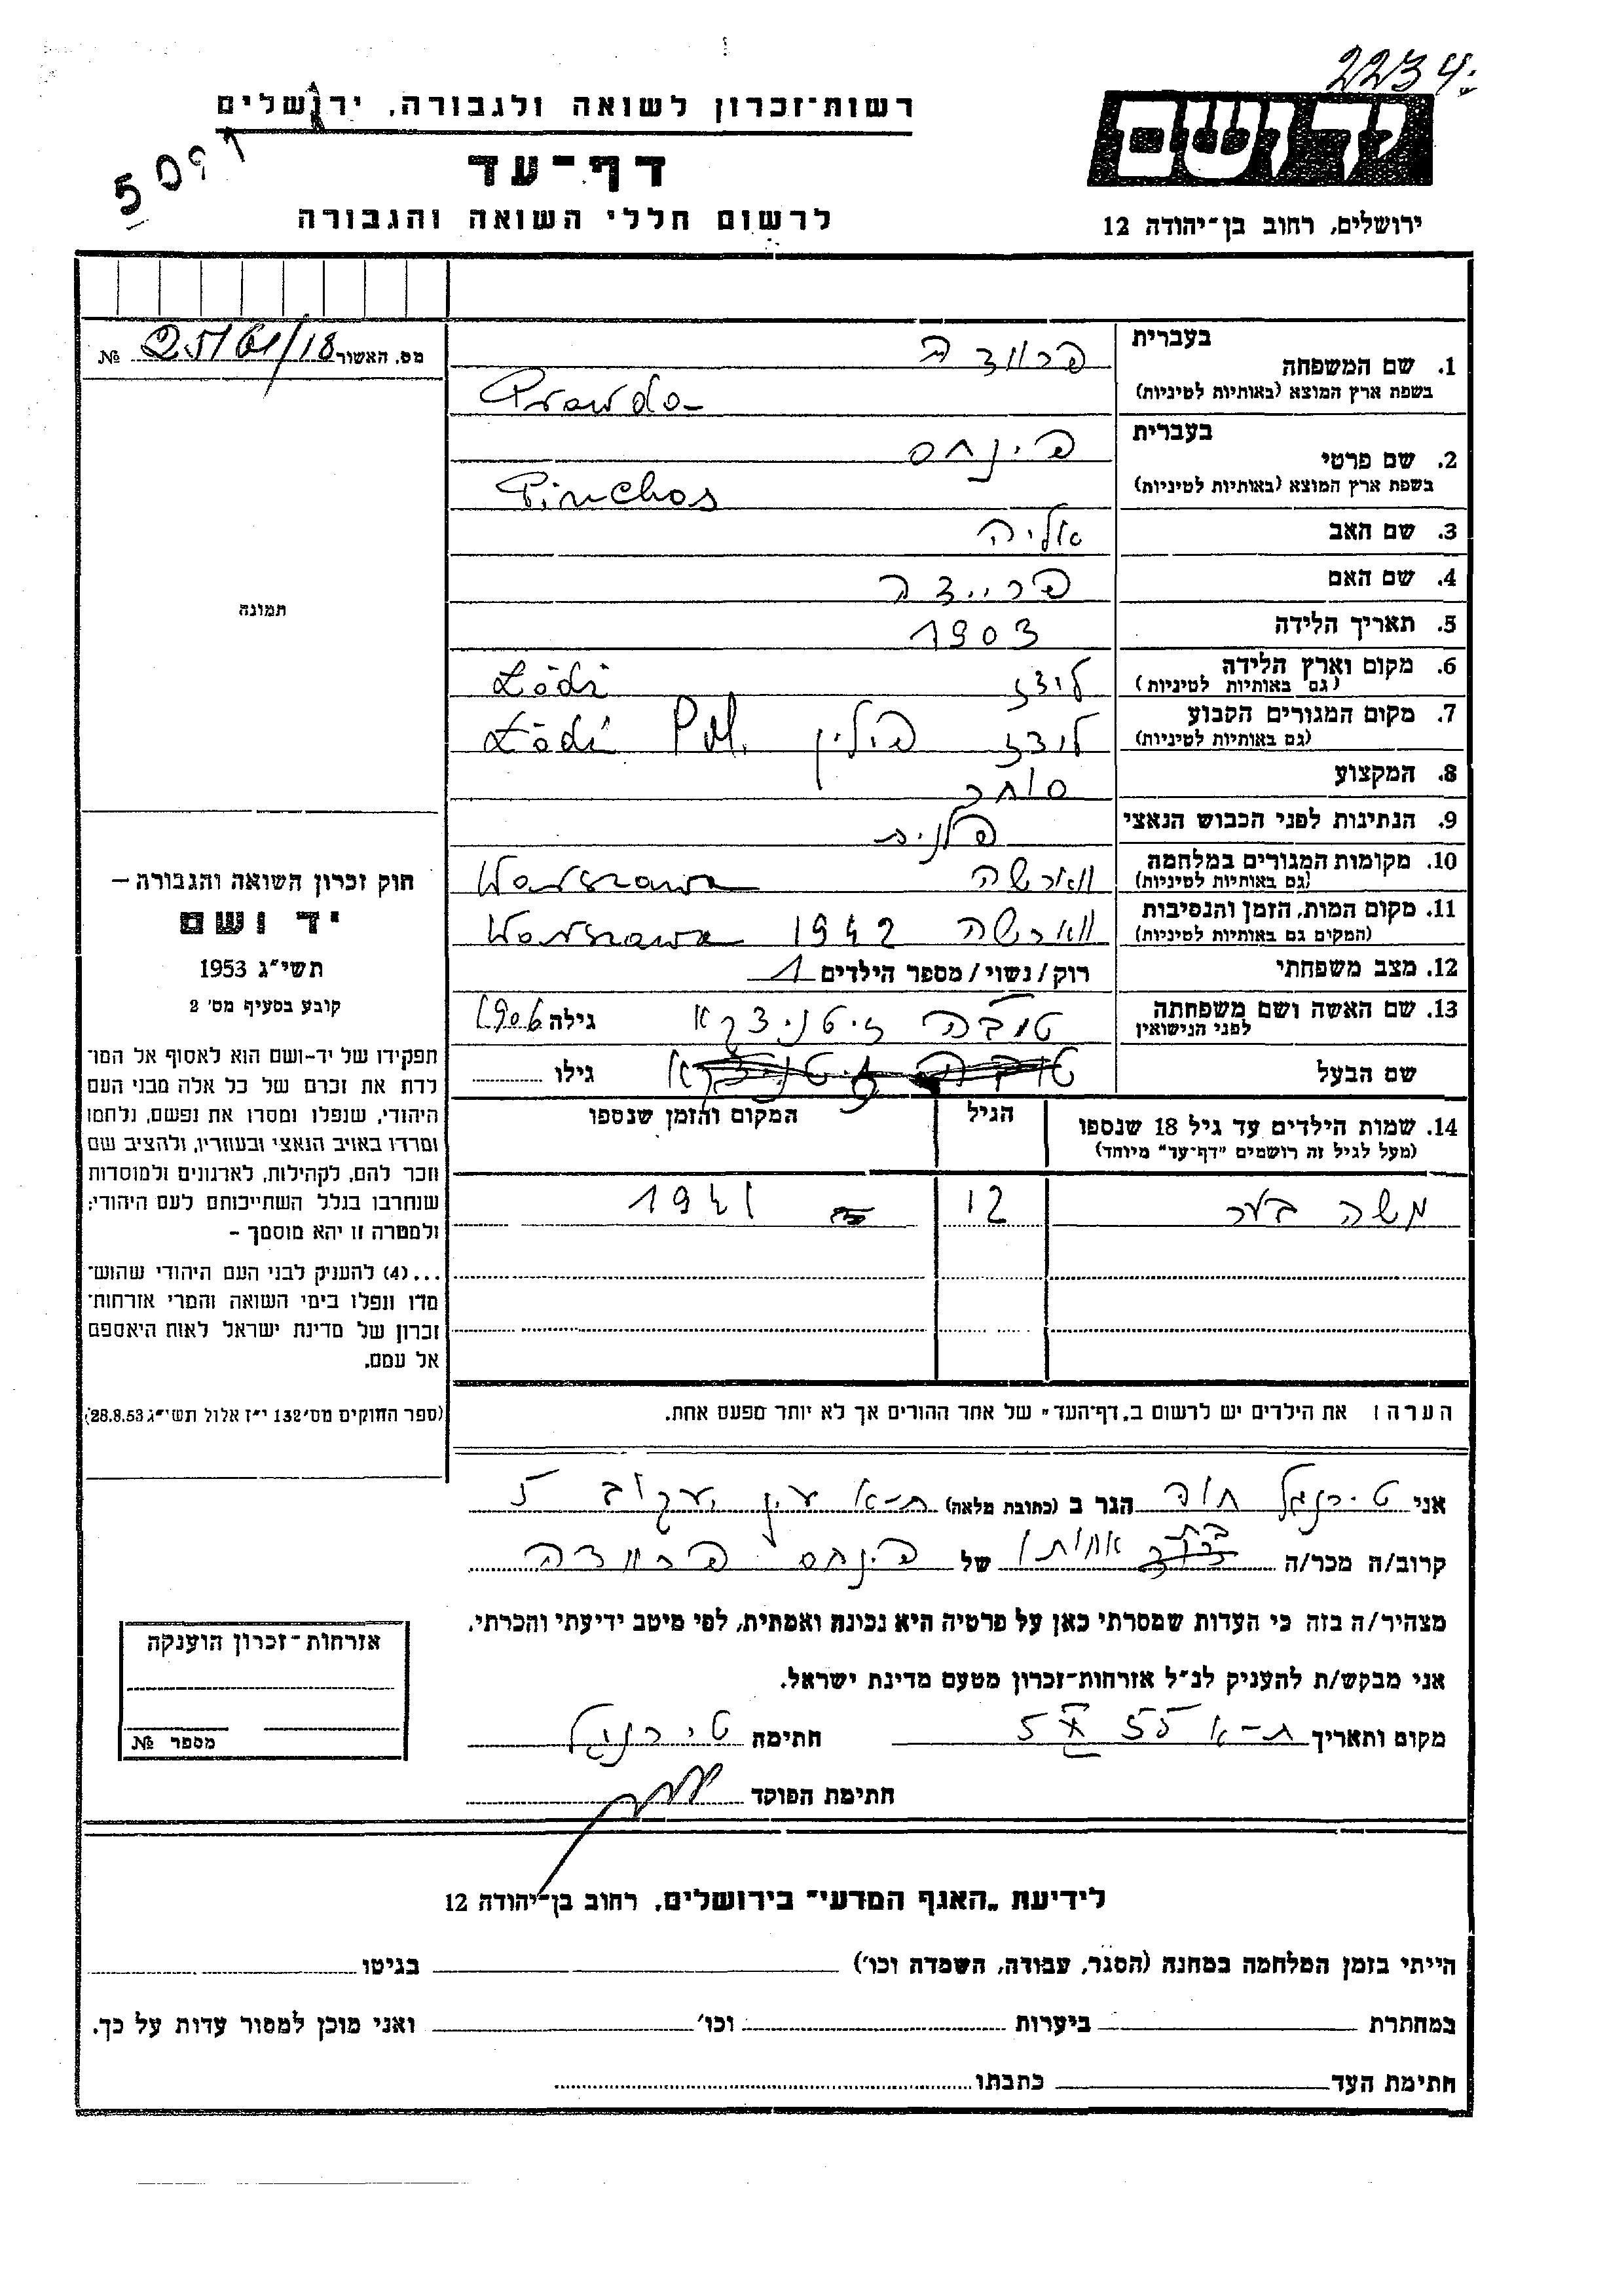 2234
רשות־זכרון לשואה ולגבורה, ירושלים
5091
דף־עד
לרשום חללי השואה והגבורה
יד ושם
ירושלים, רחוב בן־יהודה 12
מס. האשור 2561/18 №
1. שם המשפחה
בעברית פרוודה
בשפת ארץ המוצא (באותיות לטיניות) Prawda
2. שם פרטי
בעברית פינחס
בשפת ארץ המוצא (באותיות לטיניות) Pinchos
3. שם האב אליה
4. שם האם פריידה
5. תאריך הלידה 1903
6. מקום וארץ הלידה לודז Łódź
(גם באותיות לטיניות)
7. מקום המגורים הקבוע לודז פולין Pol. Łódź
(גם באותיות לטיניות)
8. המקצוע סוחר
9. הנתינות לפני הכבוש הנאצי פלנית
10. מקומות המגורים במלחמה ווארשה Warszawa
(גם באותיות לטיניות)
11. מקום המות, הזמן והנסיבות ווארשה 1942 Warszawa
(המקום גם באותיות לטיניות)
12. מצב משפחתי רוק/נשוי/מספר הילדים 1
13. שם האשה ושם משפחתה טובה גילה 1906
לפני הנישואין
שם הבעל גילו
14. שמות הילדים עד גיל 18 שנספו הגיל המקום והזמן שנספו
(מעל לגיל זה רושמים "דף־עד" מיוחד)
משה בער 12 1941
הערה: את הילדים יש לרשום ב„דף־העד" של אחד ההורים אך לא יותר מפעם אחת.
תמונה
חוק זכרון השואה והגבורה –
יד ושם
תשי"ג 1953
קובע בסעיף מס' 2
תפקידו של יד־ושם הוא לאסוף אל המו־
לדת את זכרם של כל אלה מבני העם
היהודי, שנפלו ומסרו את נפשם, נלחמו
ומרדו באויב הנאצי ובעוזריו, ולהציב שם
וזכר להם, לקהילות, לארגונים ולמוסדות
שנחרבו בגלל השתייכותם לעם היהודי;
ולמטרה זו יהא מוסמך –
...(4) להעניק לבני העם היהודי שהוש־
מדו ונפלו בימי השואה והמרי אזרחות־
זכרון של מדינת ישראל לאות היאספם
אל עמם.
(ספר החוקים מס' 132 י"ז אלול תשי"ג 28.8.53)
אני חוה הגר ב (כתובת מלאה) ת-א עין יעקוב 5
קרוב/ה מכר/ה בת אחותו של פינחס פרוודה
מצהיר/ה בזה כי העדות שמסרתי כאן על פרטיה היא נכונה ואמתית, לפי מיטב ידיעתי והכרתי.
אני מבקש/ת להעניק לנ"ל אזרחות־זכרון מטעם מדינת ישראל.
מקום ותאריך ת-א 55 X 5 חתימה
חתימת הפוקד
אזרחות־זכרון הוענקה
מספר №
לידיעת „האגף המדעי" בירושלים, רחוב בן־יהודה 12
הייתי בזמן המלחמה במחנה (הסגר, עבודה, השמדה וכו') בגיטו
במחתרת ביערות וכו' ואני מוכן למסור עדות על כך.
חתימת העד כתבתו